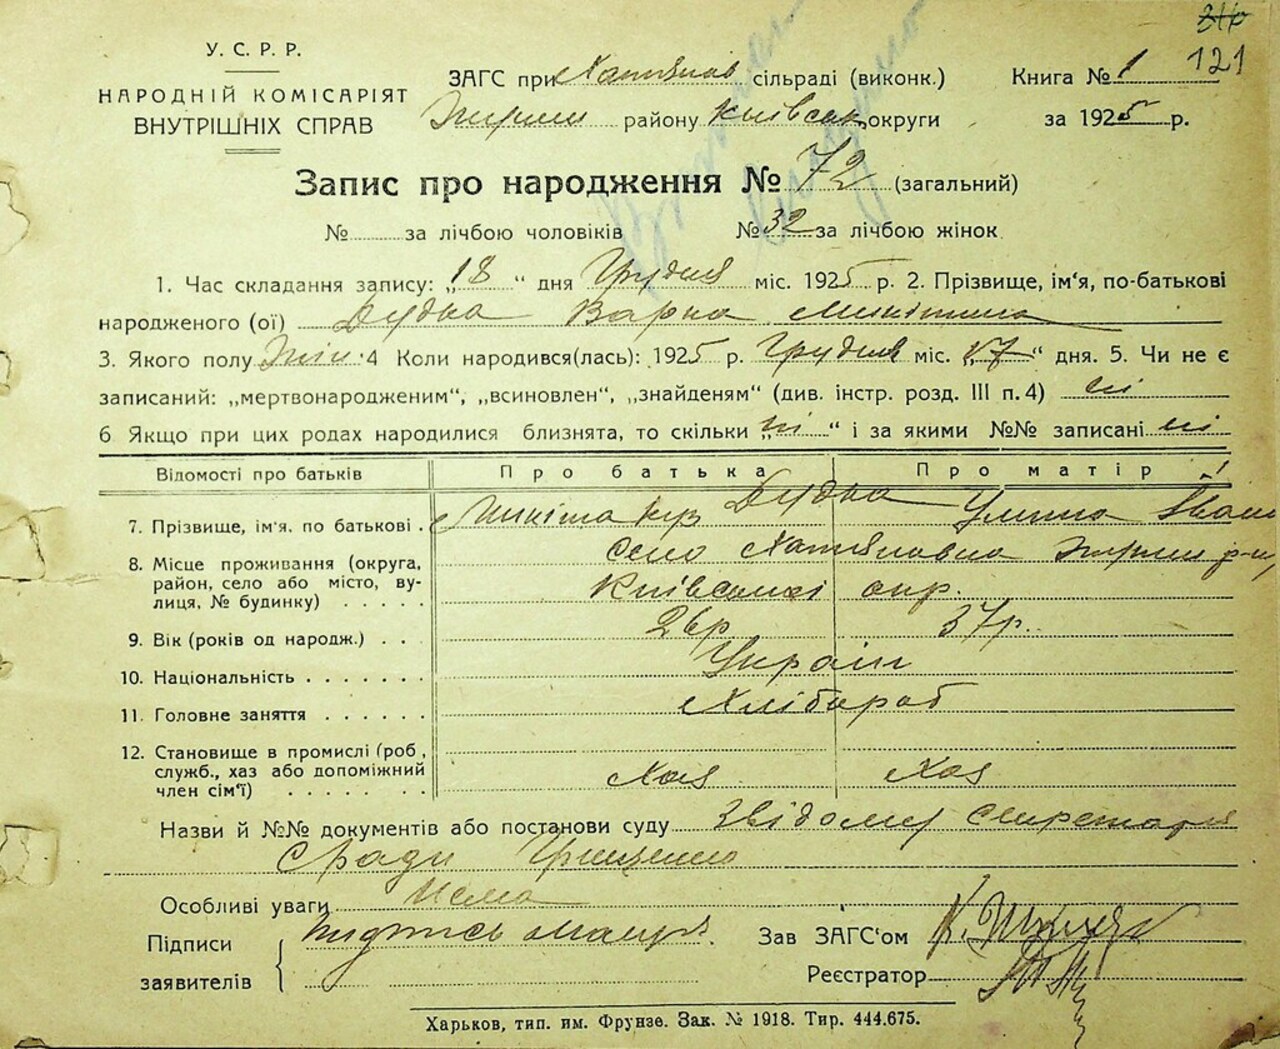 121
У. С. Р. Р.
НАРОДНІЙ КОМІСАРІЯТ
ВНУТРІШНІХ СПРАВ
ЗАГС при сільраді (виконк.)
району Київськ округи
Книга № 1
за 1925 р.
Запис про народження № 72 (загальний)
№ за лічбою чоловіків № 32 за лічбою жінок
1. Час складання запису: „18“ дня Грудня міс. 1925 р. 2. Прізвище, ім‘я, по-батькові
народженого (ої) Дудка Варка Микітина
3. Якого полу Жін. 4 Коли народився(лась): 1925 р. Грудня міс. „17“ дня. 5. Чи не є
записаний: „мертвонародженим“, „всиновлен“, „знайденям“ (див. інстр. розд. III п. 4) ні
6 Якщо при цих родах народилися близнята, то скільки „ні“ і за якими №№ записані ні
Відомості про батьків Про батька Про матір
Дудка
7. Прізвище, ім‘я. по батькові. Микіта Куз Улита Іван
8. Місце проживання (округа,
район, село або місто, ву-
лиця, № будинку)
село р-ну
Київської окр.
9. Вік (років од народж.) . . . 26р 37р.
10. Національність . . . . . . . Україн
11. Головне заняття . . . . . . Хлібороб
12. Становище в промислі (роб,
служб., хаз або допоміжний
член сім‘ї) . . . . . . Хаз Хаз
Назви й №№ документів або постанови суду звідому секретаря
с/ради Грищенко
Особливі уваги Нема
Підписи
заявителів
підпись
Зав ЗАГС‘ом
Реєстратор
Харьков, тип. им. Фрунзе. Зак. № 1918. Тир. 444.675.